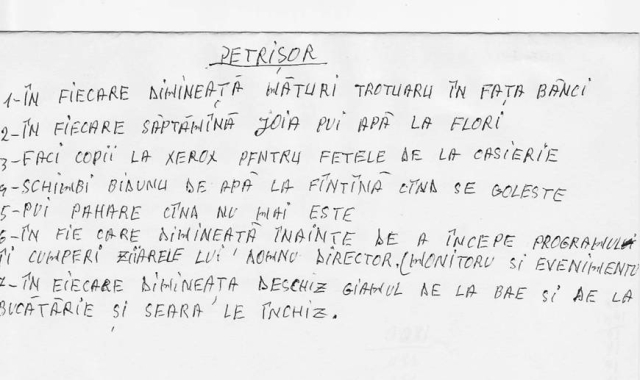 PETRIȘOR
1-ÎN FIECARE DIMINEAȚĂ MĂTURI TROTUARU ÎN FAȚA BĂNCI
2-ÎN FIECARE SĂPTĂMÎNĂ JOIA PUI APĂ LA FLORI
3-FACI COPII LA XEROX PENTRU FETELE DE LA CASIERIE
4-SCHIMBI BIDUNU DE APĂ LA FÎNTÎNĂ CÎND SE GOLESTE
5-PUI PAHARE CÎND NU MAI ESTE
6-ÎN FIE CARE DIMINEAȚĂ ÎNAINTE DE A ÎNCEPE PROGRAMULU
ÎI CUMPERI ZIARELE LUI DOMNU DIRECTOR. (MONITORU SI EVENIMENTU
7-ÎN FIECARE DIMINEATA DESCHIZ GIAMUL DE LA BAE SI DE LA
BUCĂTĂRIE ȘI SEARA LE ÎNCHIZ.